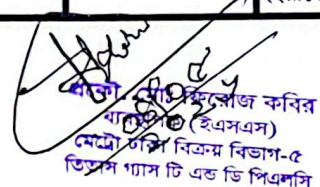 প্রকৌ. মোঃ ফিরোজ কবির
ব্যবস্থাপক (ইএসএস)
মেট্রো ঢাকা বিক্রয় বিভাগ-৫
তিতাস গ্যাস টি এন্ড ডি পিএলসি